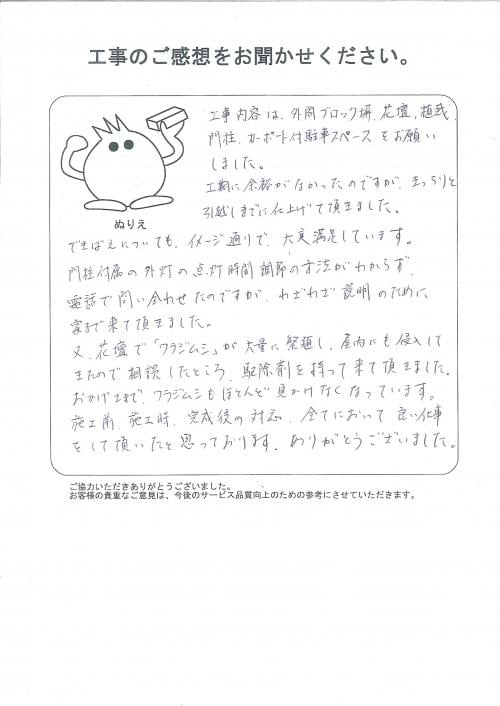 工事のご感想をお聞かせください。
工事内容は、外周ブロック塀、花壇、植栽、
門柱、カーポート付駐車スペースをお願い
しました。
工期に余裕がなかったのですが、きっちりと
引越しまでに仕上げて頂きました。
ぬりえ
できばえについても、イメージ通りで、大変満足しています。
門柱付属の外灯の点灯時間調節の方法がわからず、
電話で問い合わせたのですが、わざわざ説明のために
家まで来て頂きました。
又、花壇で「ワラジムシ」が大量に繁殖し、屋内にも侵入して
きたので相談したところ、駆除剤を持って来て頂きました。
おかげさまで、ワラジムシもほとんど見かけなくなっています。
施工前、施工時、完成後の対応、全てにおいて良い仕事
をして頂いたと思っております。ありがとうございました。
ご協力いただきありがとうございました。
お客様の貴重なご意見は、今後のサービス品質向上のための参考にさせていただきます。